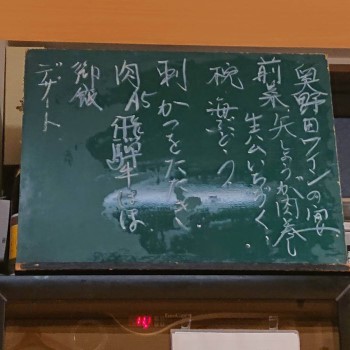 奥野田ワインの宴
前菜、矢しょうが肉巻
生公いちじく
椀
刺 かつをたたき
肉A5飛騨牛ほほ
御飯
デザート